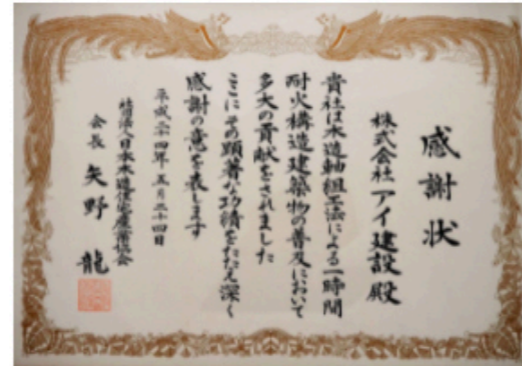 感謝状
株式会社アイ建設殿
貴社は木造軸組工法による一時間
耐火構造建築物の普及において
多大の貢献をされました
ここにその顕著な功績をたたえ深く
感謝の意を表します
平成二十四年五月二十四日
日本木造住宅産業協会
会長 矢野 龍